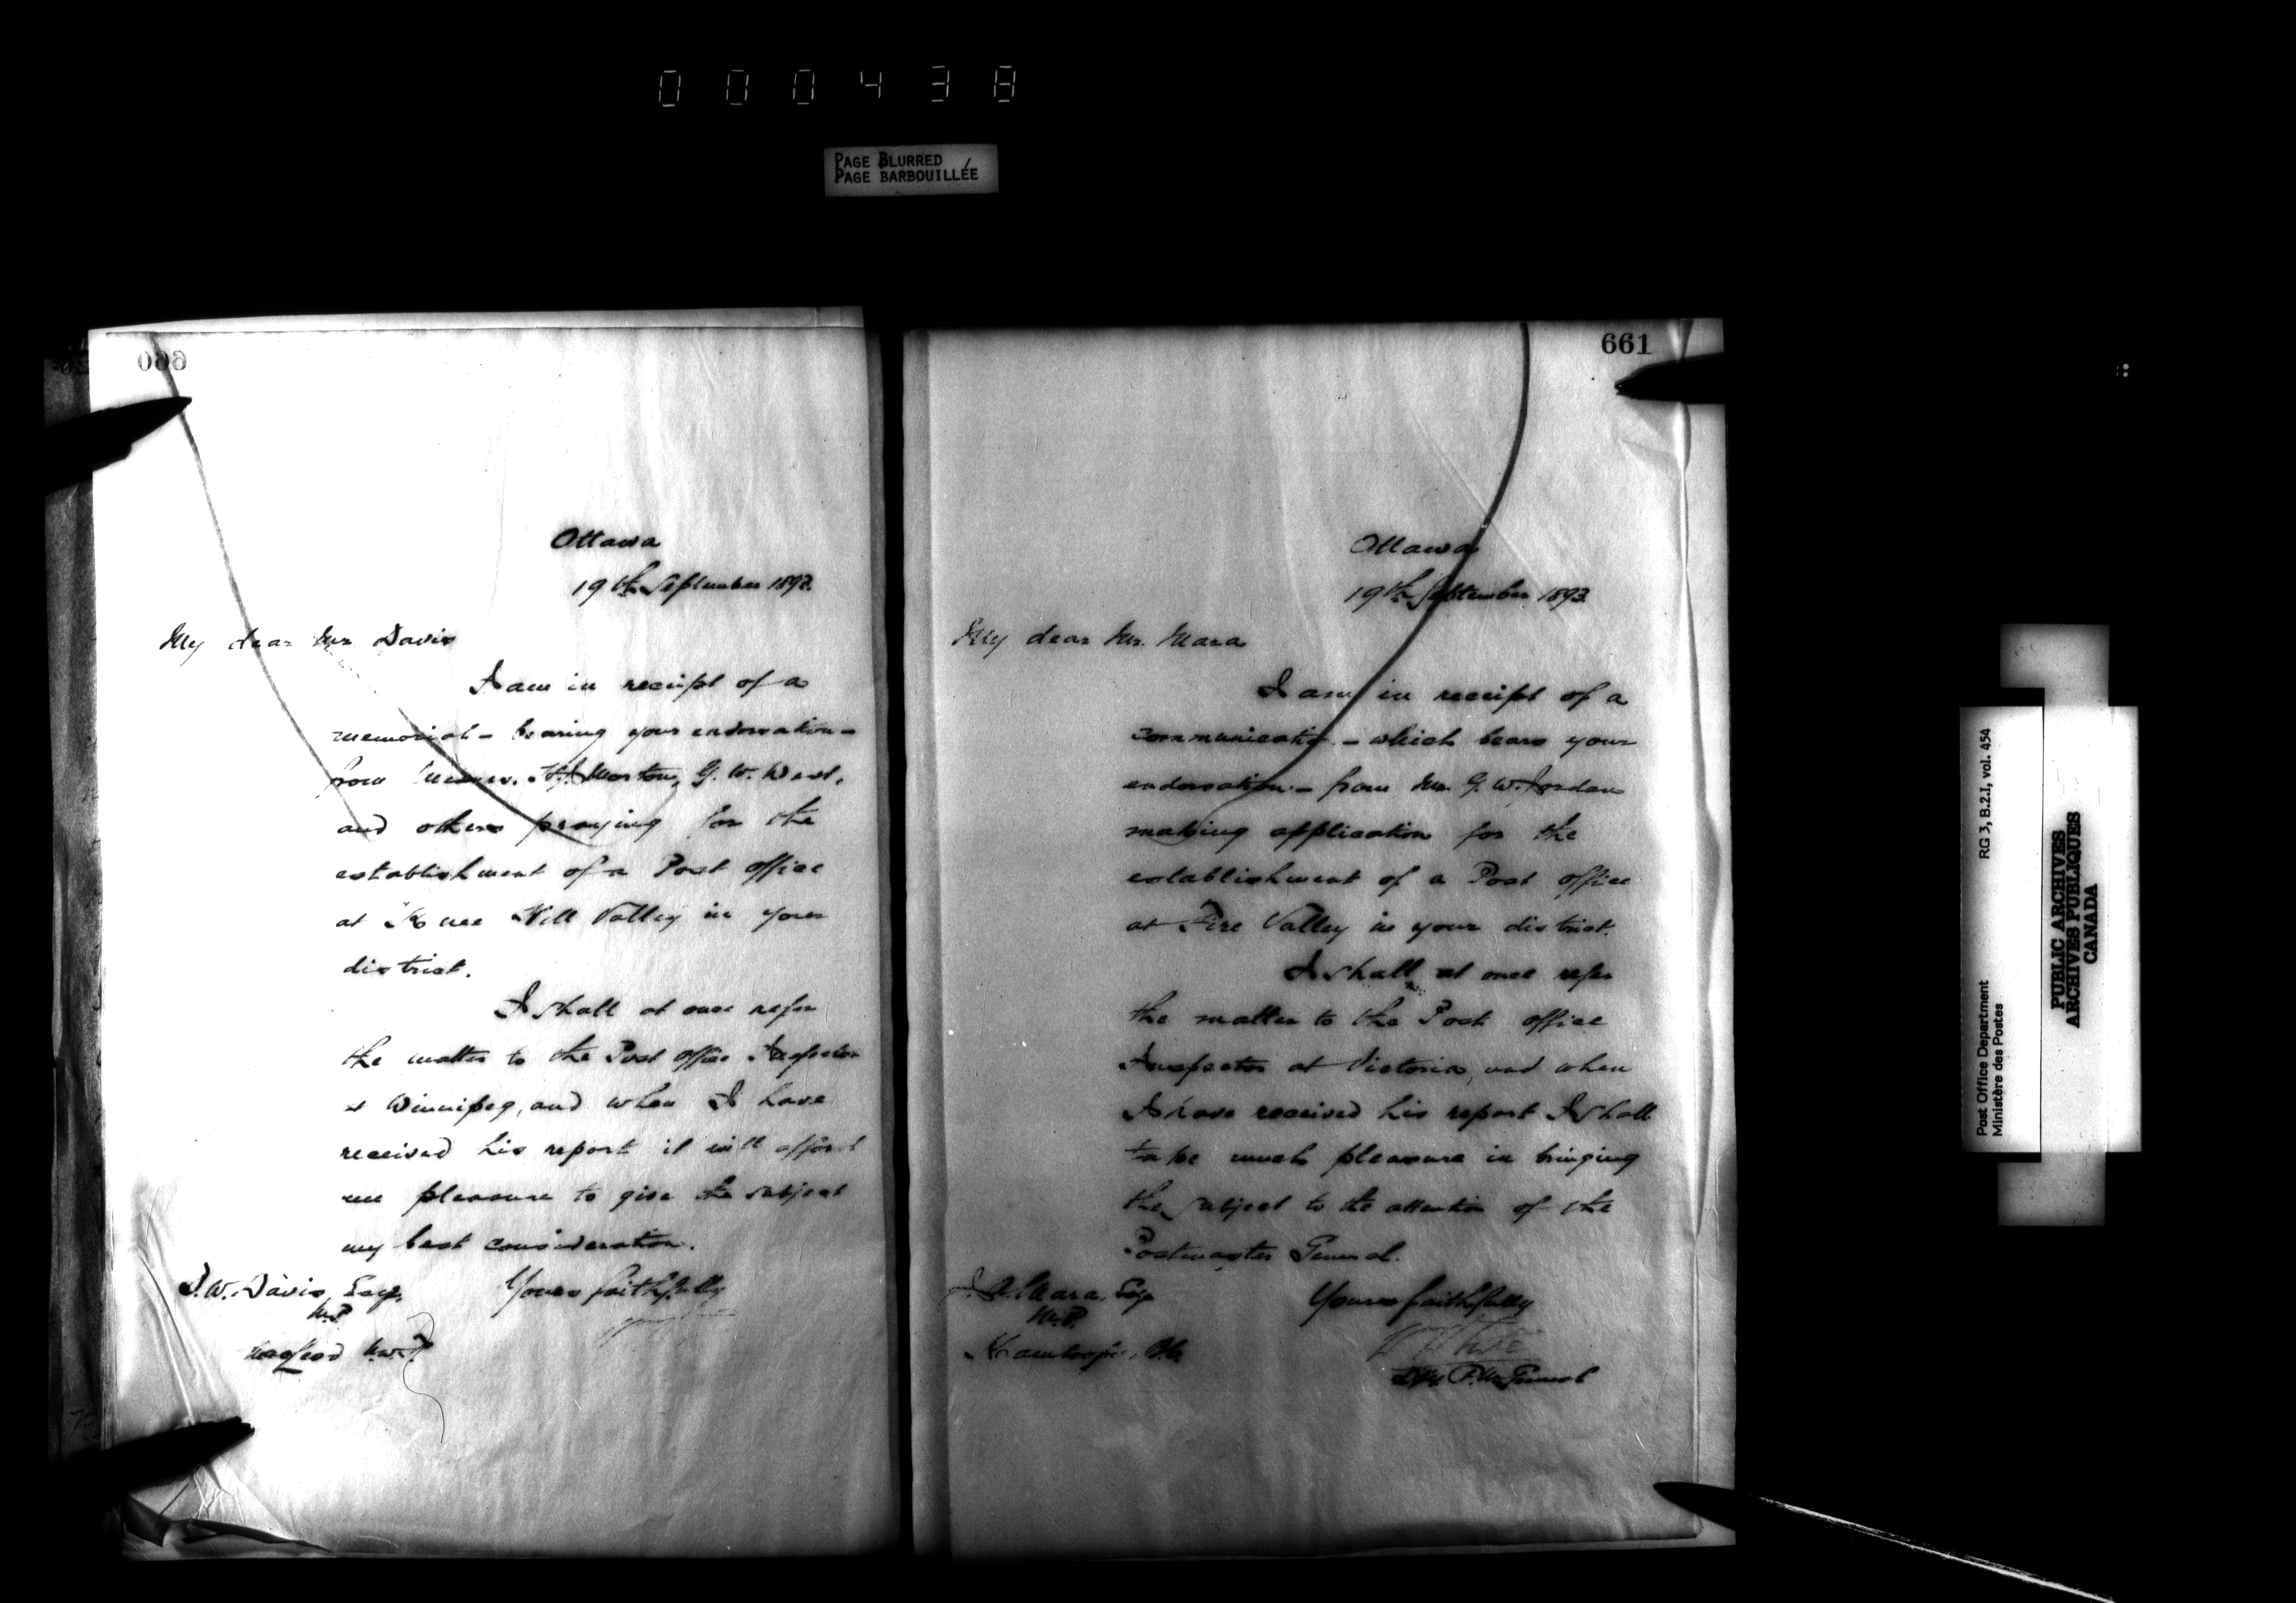 000438
PAGE BLURRED
PAGE BARBOUILLÉE
660
Ottawa
19th September 1893.
My dear Mr Davis
I am in receipt of a
memorial - bearing your endorsation -
from Messrs. Morton, G. W. West,
and others praying for the
establishment of a Post office
at Knee Hill Valley in your
district.
I shall at once refer
the matter to the Post office Inspector
at Winnipeg, and when I have
received his report it will afford
me pleasure to give the subject
my best consideration.
Yours faithfully
D. W. Davis, Esq.
M.P.
Macleod N.W.T.
661
Ottawa
19th September 1893
My dear Mr. Mara
I am in receipt of a
communication - which bears your
endorsation - from Mr. G. W. Jordan
making application for the
establishment of a Post office
at Fire Valley in your district.
I shall at once refer
the matter to the Post office
Inspector at Victoria, and when
I have received his report I shall
take much pleasure in bringing
the subject to the attention of the
Postmaster General.
Yours faithfully
J. A. Mara, Esq
M.P.
Kamloops, B.C.
P.M. General
Post Office Department
Ministère des Postes
RG 3, B.2.1, vol. 454
PUBLIC ARCHIVES
ARCHIVES PUBLIQUES
CANADA